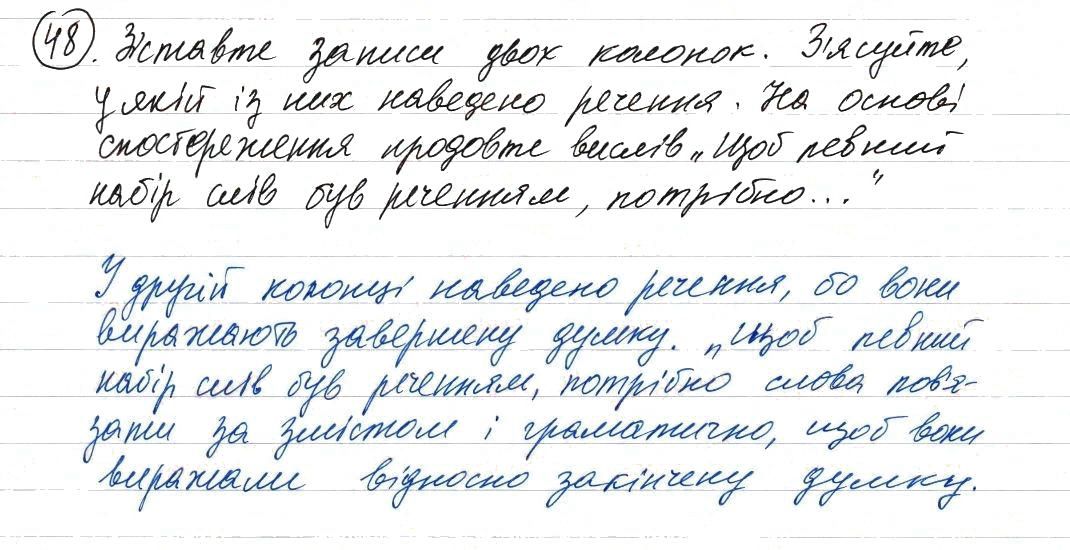 48. Зіставте записи двох колонок. З'ясуйте,
у якій із них наведено речення. На основі
спостереження продовжте вислів „Щоб певний
набір слів був реченням, потрібно..."
У другій колонці наведено речення, бо вони
виражають завершену думку. „Щоб певний
набір слів був реченням, потрібно слова пов'я-
зати за змістом і граматично, щоб вони
виражали відносно закінчену думку.